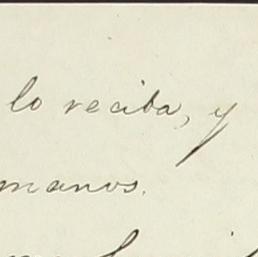 lo reciba, y
manos.